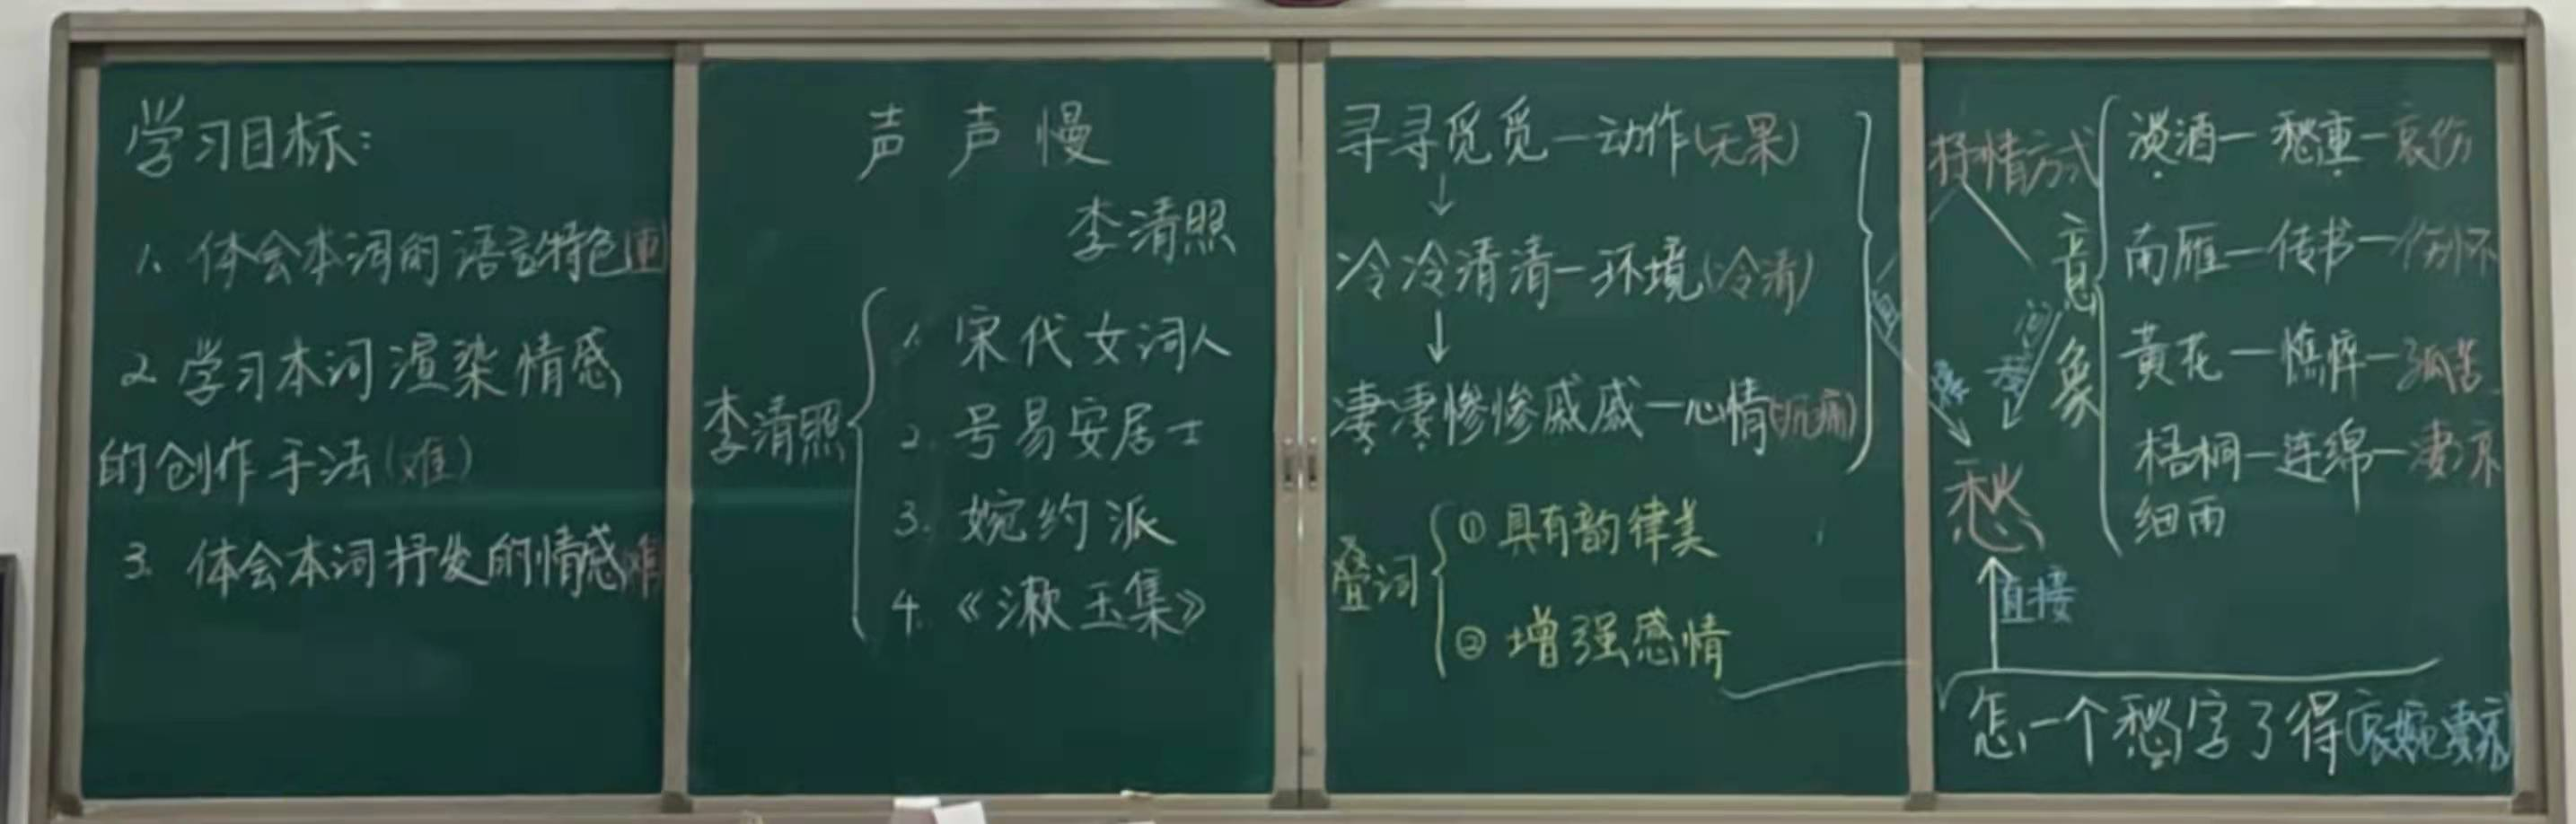 学习目标:
1、体会本词的语言特色(重
2 学习本词渲染情感
的创作手法(难)
3. 体会本词抒发的情感(难
声声慢
李清照
李清照
1. 宋代女词人
2. 号易安居士
3. 婉约派
4. 《漱玉集》
寻寻觅觅—动作(无果)
冷冷清清—环境(冷清)
凄凄惨惨戚戚—心情(沉痛)
叠词
① 具有韵律美
② 增强感情
抒情方式
直接
间接
意象
淡酒—愁重—哀伤
南雁—传书—伤怀
黄花—憔悴—孤苦
梧桐—连绵—凄凉
细雨
愁
直接
怎一个愁字了得(哀婉凄凉)